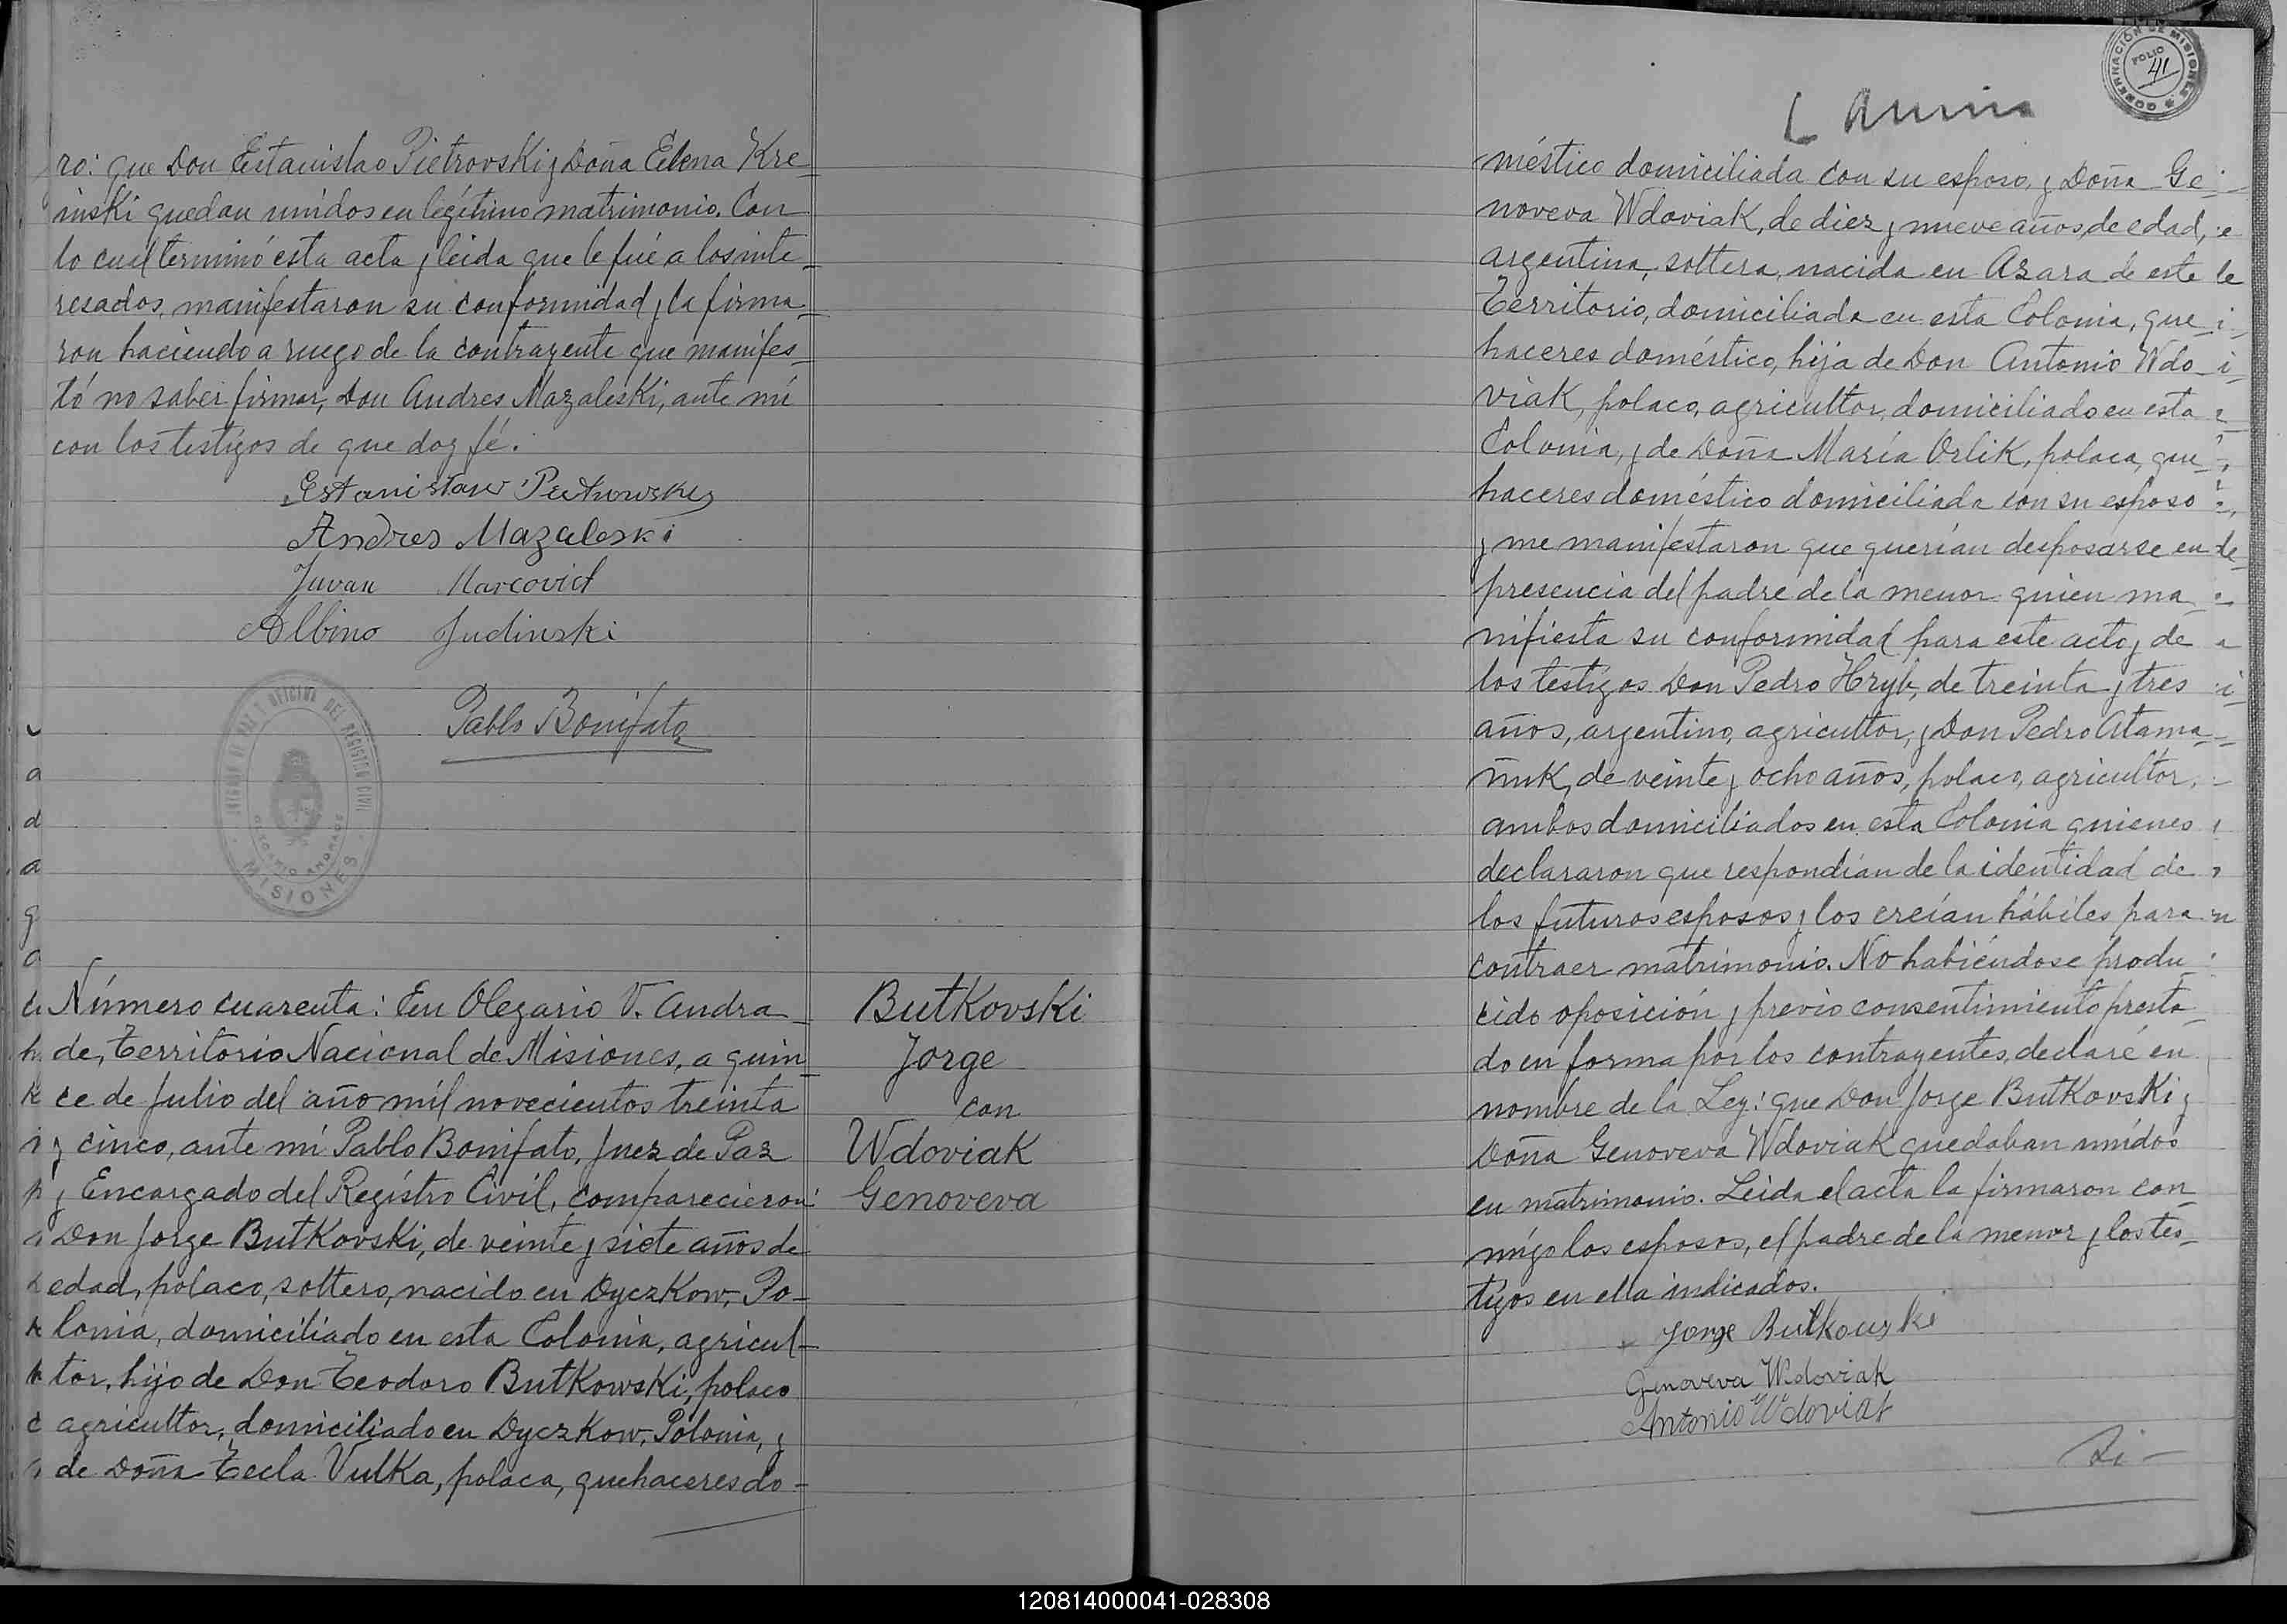 ro: que Don Estanislao Pietrovski y Doña Elena Kre-
inski quedan unidos en legítimo matrimonio. Con
lo cual terminó esta acta y leida que le fué a los inte-
resados, manifestaron su conformidad y la firma-
ron haciendo a ruego de la contrayente que manifes-
tó no saber firmar, Don Andres Mazaleski, ante mí
con los testigos de que doy fé.
Andres Mazaleski
Juvan Marcovich
Albino Judinski
Pablo Bonifato
MISIONES
Número cuarenta: En Olegario V. Andra-
de, Territorio Nacional de Misiones, a quin-
ce de Julio del año mil novecientos treinta
y cinco, ante mí Pablo Bonifato, Juez de Paz
y Encargado del Regístro Civil, comparecieron:
Don Jorge Butkovski, de veinte y siete años de
edad, polaco, soltero, nacido en Dyczkow, Po-
lonia, domiciliado en esta Colonia, agricul-
tor, hijo de Don Teodoro Butkowski, polaco
agricultor, domiciliado en Dyczkow, Polonia, y
de Doña Tecla Vulka, polaca, quehaceres do-
Butkovski
Jorge
con
Wdoviak
Genoveva
GOBERNACIÓN DE MISIONES
FOLIO
41
méstico domiciliada con su esposo, y Doña Ge-
noveva Wdoviak, de diez y nueve años, de edad,
argentina, soltera, nacida en Azara de este
Territorio, domiciliada en esta Colonia, que
haceres doméstico, hija de Don Antonio Wdo-
viak, polaco, agricultor, domiciliado en esta
Colonia, y de Doña María Orlik, polaca, que
haceres doméstico domiciliada con su esposo
y me manifestaron que querían desposarse en
presencia del padre de la menor quien ma
nifiesta su conformidad para este acto y de
los testigos Don Pedro Hryb, de treinta y tres
años, argentino, agricultor, y Don Pedro Atama-
ñuk, de veinte y ocho años, polaco, agricultor,
ambos domiciliados en esta Colonia quienes
declararon que respondían de la identidad de
los futuros esposos y los creían hábiles para
contraer matrimonio. No habiéndose produ
cido oposición y previo consentimiento presta-
do en forma por los contrayentes, declaré en
nombre de la Ley: que Don Jorge Butkovski y
Doña Genoveva Wdoviak quedaban unídos
en matrimonio. Leida el acta la firmaron con-
mígo los esposos, el padre de la menor y los tes-
tígos en ella indicados.
Jorge Butkowski
Genoveva Wdoviak
Antonio Wdoviak
Si-
120814000041-028308